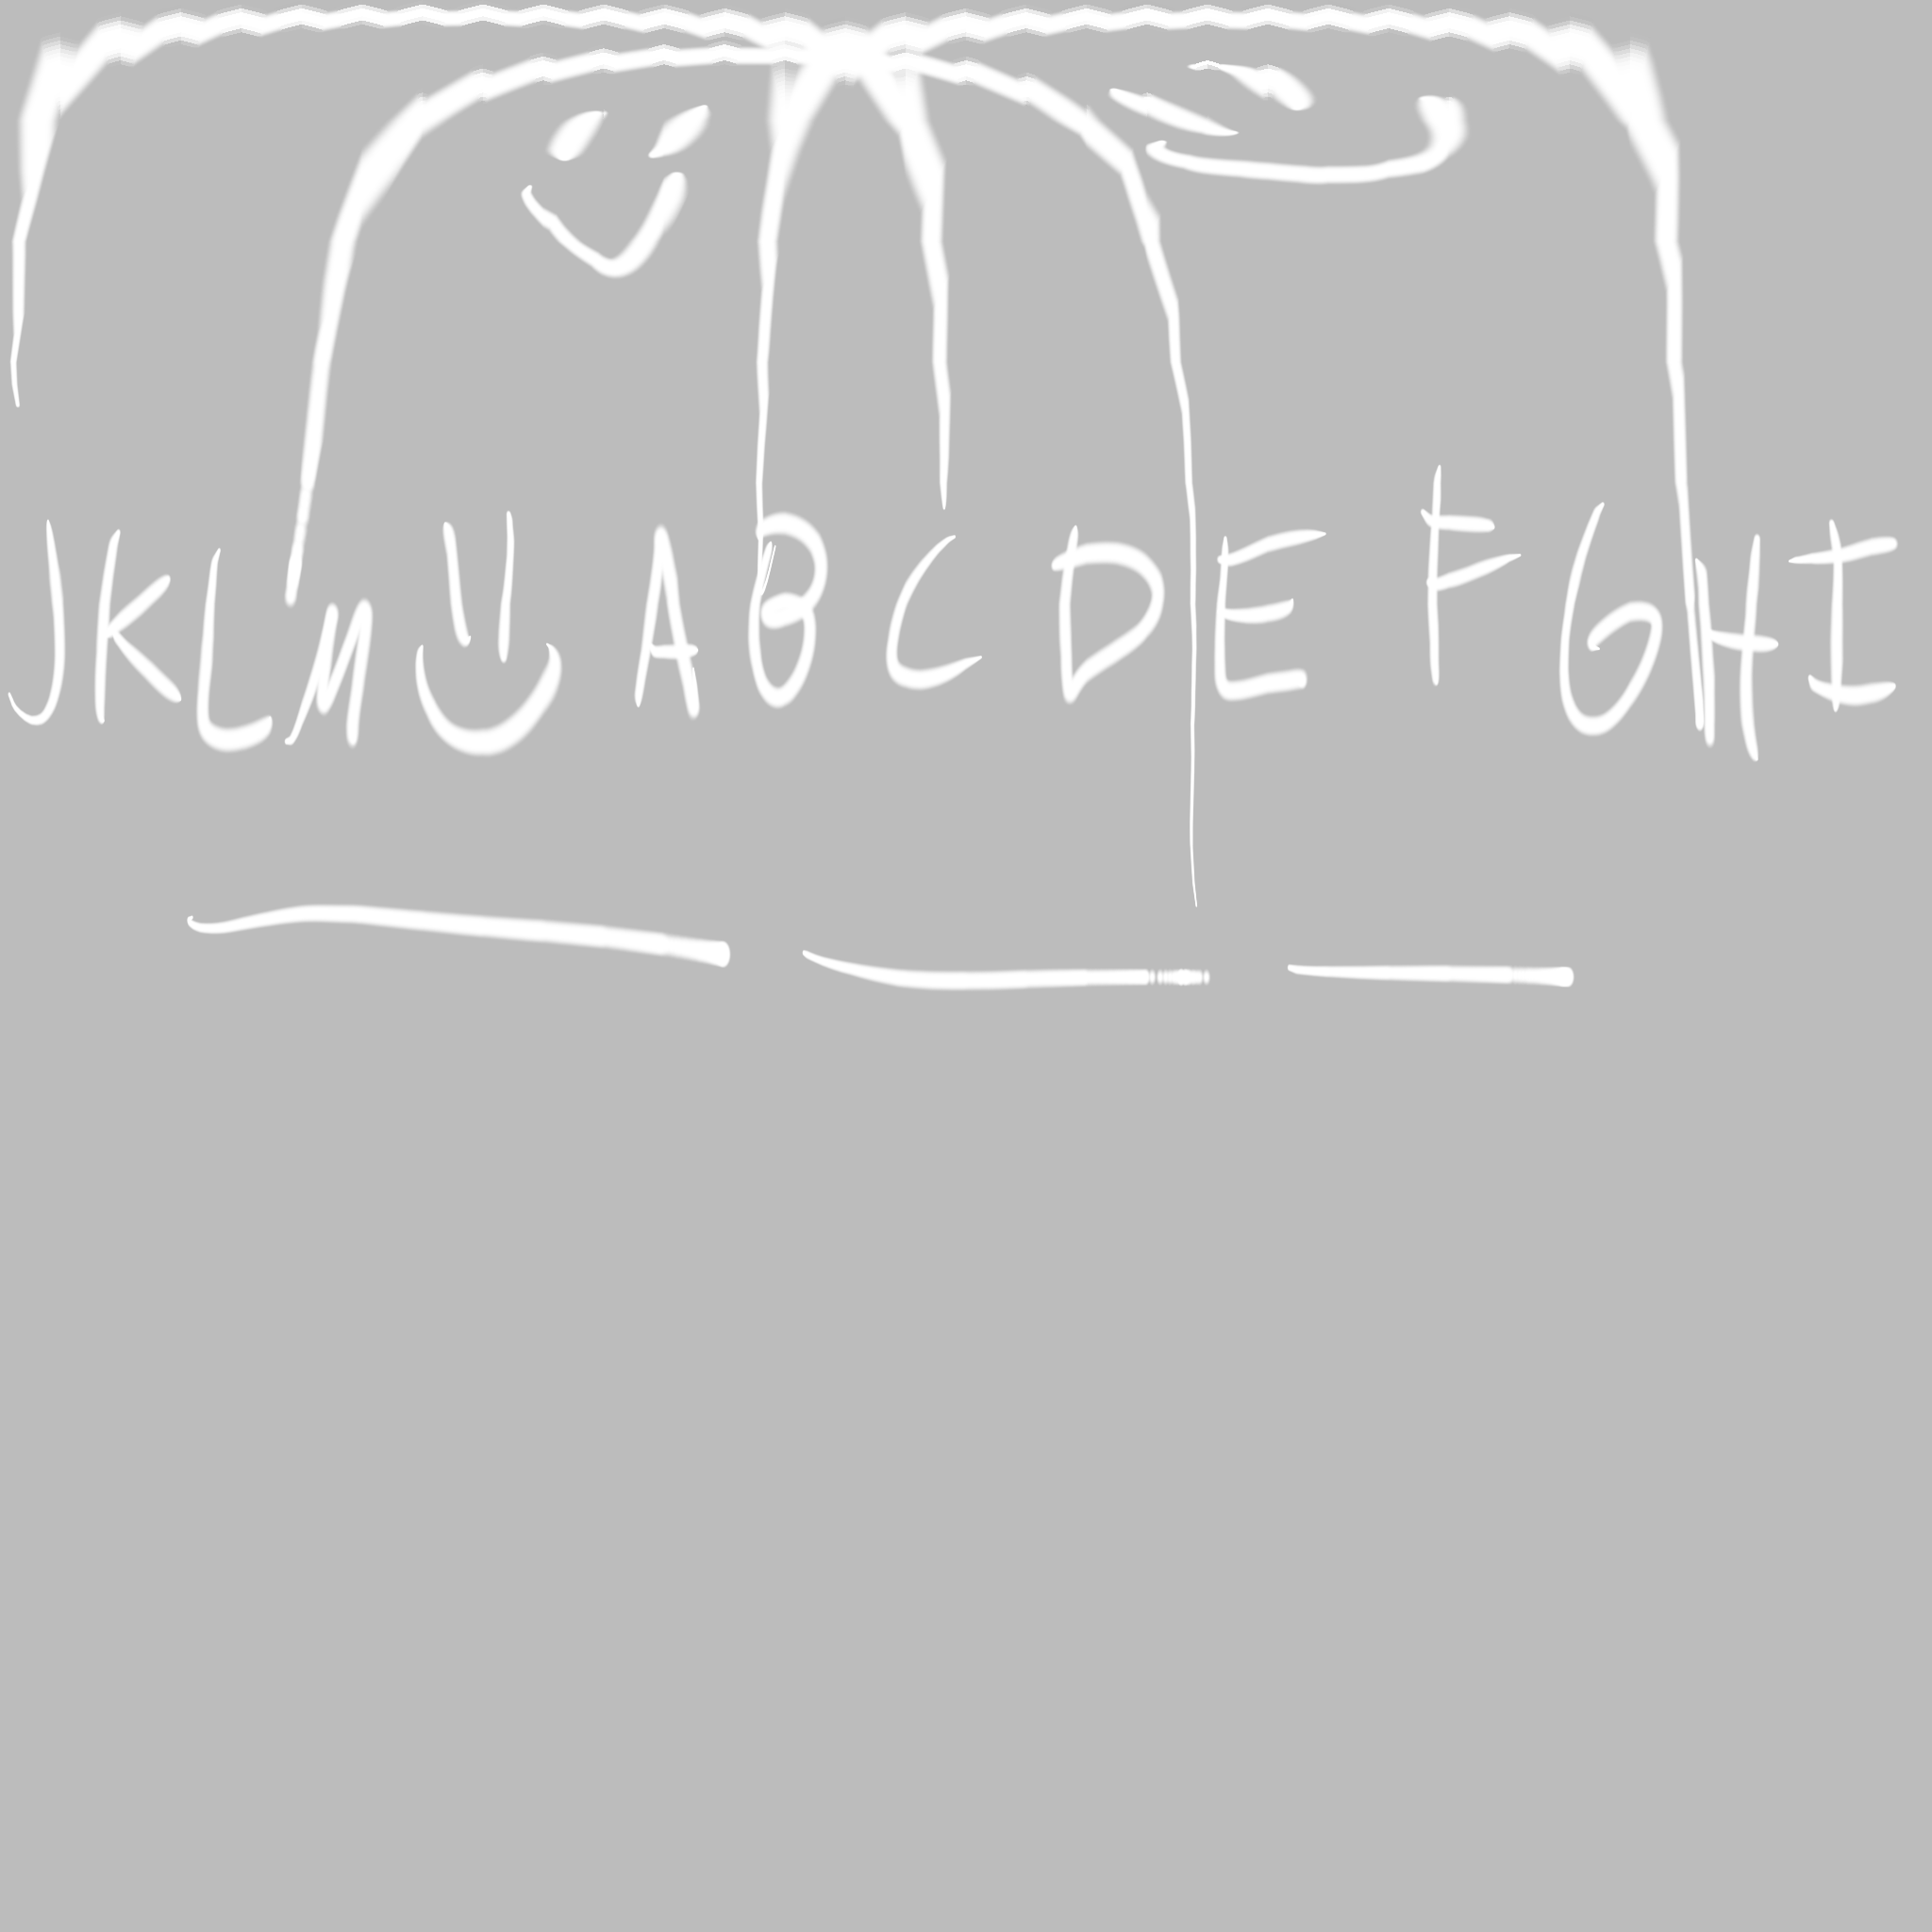 JKLM ABCDEFGHI